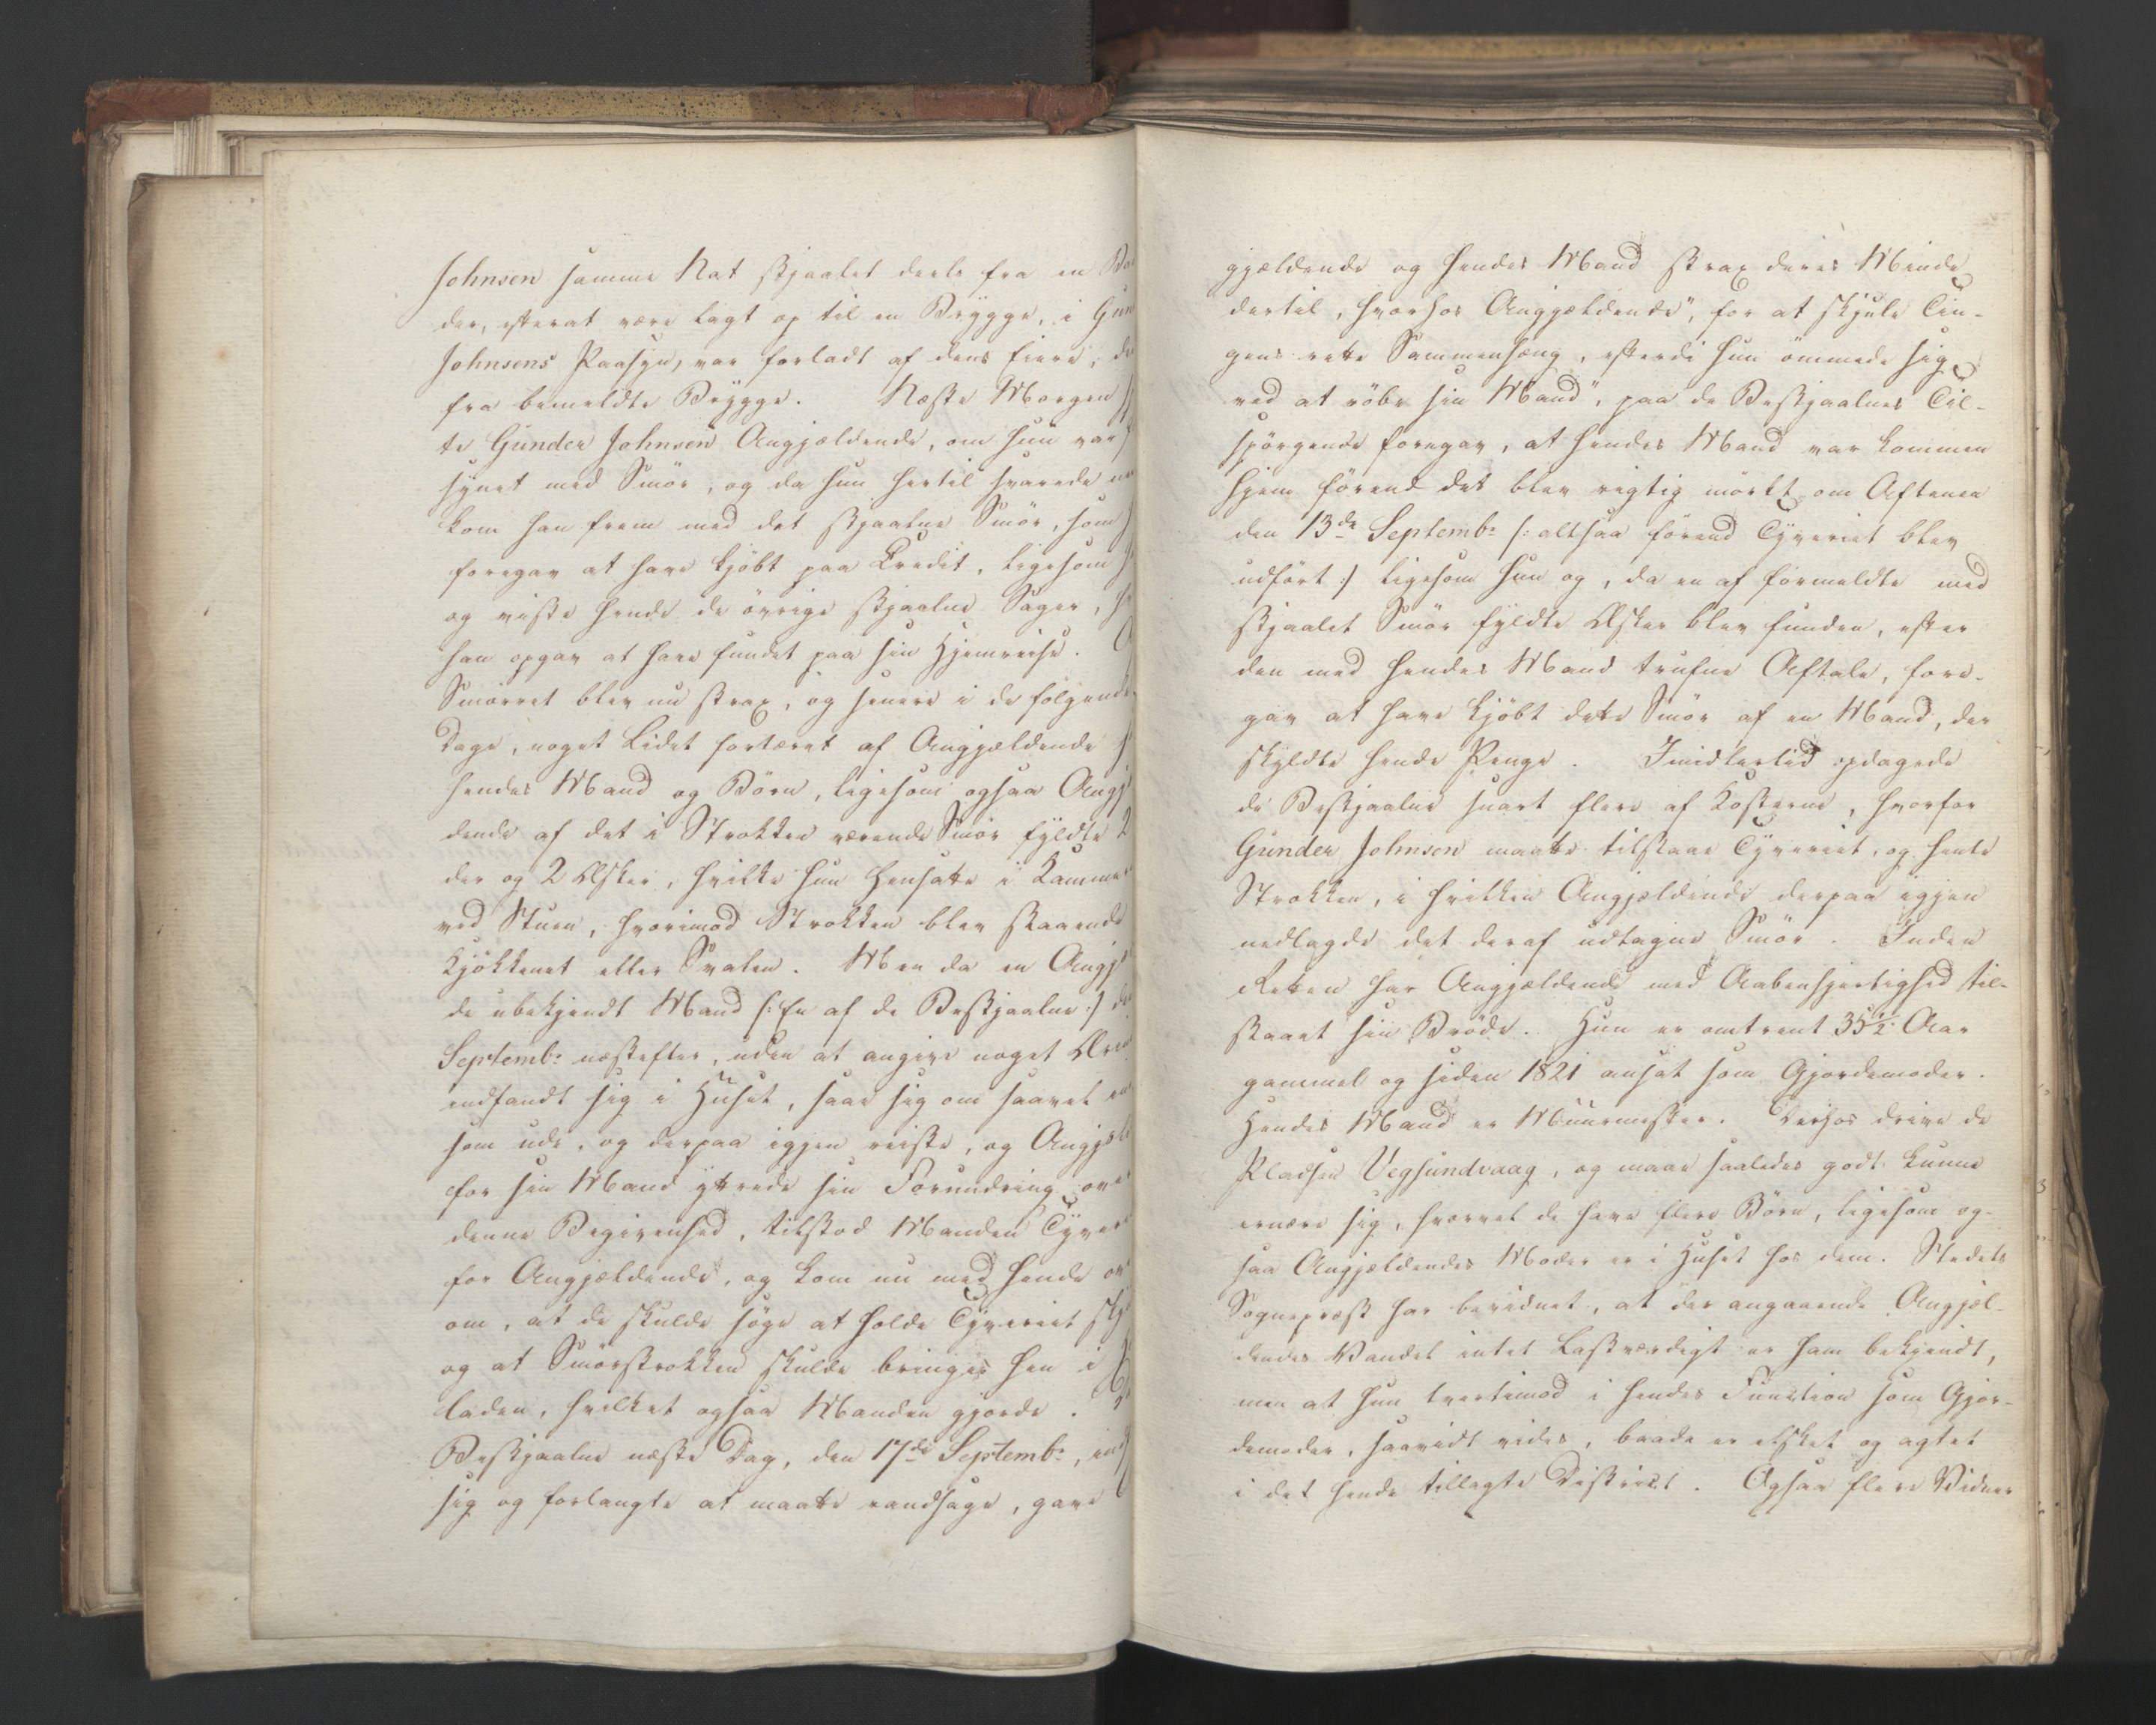 Johnsen samme Nat stjaalet deels fra en
der, efterat være lagt op til en Brygge, i Gun
Johnsens Paasyn, var forladt af dens Eiere, de
fra bemeldte Brygge. Næste Morgen
te Gunder Johnsen Angjældende, om hun var
synet med Smör, og da hun hertil svarede
kom han frem med det stjaalne Smör, som
foregav at have kjöbt paa Credit, ligesom
og viste hende de övrige stjaalne Sager,
han opgav at have fundet paa sin Hjemreise.
Smörret blev nu strax, og senere i de fölgende
Dage, noget Lidet fortæret af Angjældende
hendes Mand og Börn, ligesom ogsaa Angjæl
dende af det i Strokken værende Smör fyldte 2
der og 2 Æsker, hvilke hun hensatte i Kammer
ved Stuen, hvorimod Strokken blev staaende
Kjökkenet eller Svalen. Men da en Angj
de ubekjendt Mand /: En af de Bestjaalne :/ de
Septembr næstefter, uden at angive noget
indfandt sig i Huset, saae sig om saavel
som ude, og derpaa igjen reiste, og Angjæl
for sin Mand yttrede sin Forundring over
denne Begivenhed, tilstod Manden Tyveri
for Angjældende, og kom nu med hende
om, at de skulde söge at holde Tyveriet skj
og at Smörstrokken skulde bringes hen i
laden, hvilket ogsaa Manden gjorde.
Bestjaalne næste Dag, den 17de Septembr, ind
sig og forlangte at maatte randsage, gave
gjældende og hendes Mand strax deres Minde
dertil, hvorhos Angjældende, "for at skjule Tin-
gens rette Sammenhæng, efterdi hun ömmede sig
ved at röbe sin Mand", paa de Bestjaalnes Til-
spörgende foregav, at hendes Mand var kommen
hjem förend det blev rigtig mörkt om Aftenen
den 13de Septembr /: altsaa förend Tyveriet blev
udfört :/ ligesom hun og, da en af formeldte med
stjaalet Smör fyldte Æsker blev funden, efter
den med hendes Mand trufne Aftale, fore-
gav at have kjöbt dette Smör af en Mand, der
skyldte hende Penge. Imidlertid opdagede
de Bestjaalne snart flere af Kosterne, hvorfor
Gunder Johnsen maatte tilstaae Tyveriet, og hente
Strokken, i hvilken Angjældende derpaa igjen
nedlagde det deraf udtagne Smör. Inden
Retten har Angjældende med Aabenhjertighed til-
staaet sin Bröde. Hun er omtrent 35½ Aar
gammel og siden 1821 ansat som Gjordemoder.
Hendes Mand er Muurmester. Derhos drive de
Pladsen Vegsundvaag, og maae saaledes godt kunne
ernære sig, hvorvel de have flere Börn, ligesom og-
saa Angjældendes Moder er i Huset hos dem. Stedets
Sognepræst har bevidnet, at der angaaende Angjæl-
dendes Vandel intet Lastværdigt er ham bekjendt,
men at hun tvertimod i hendes Function som Gjor-
demoder, saavidt vides, baade er elsket og agtet
i det hende tillagte District. Ogsaa flere Vidner